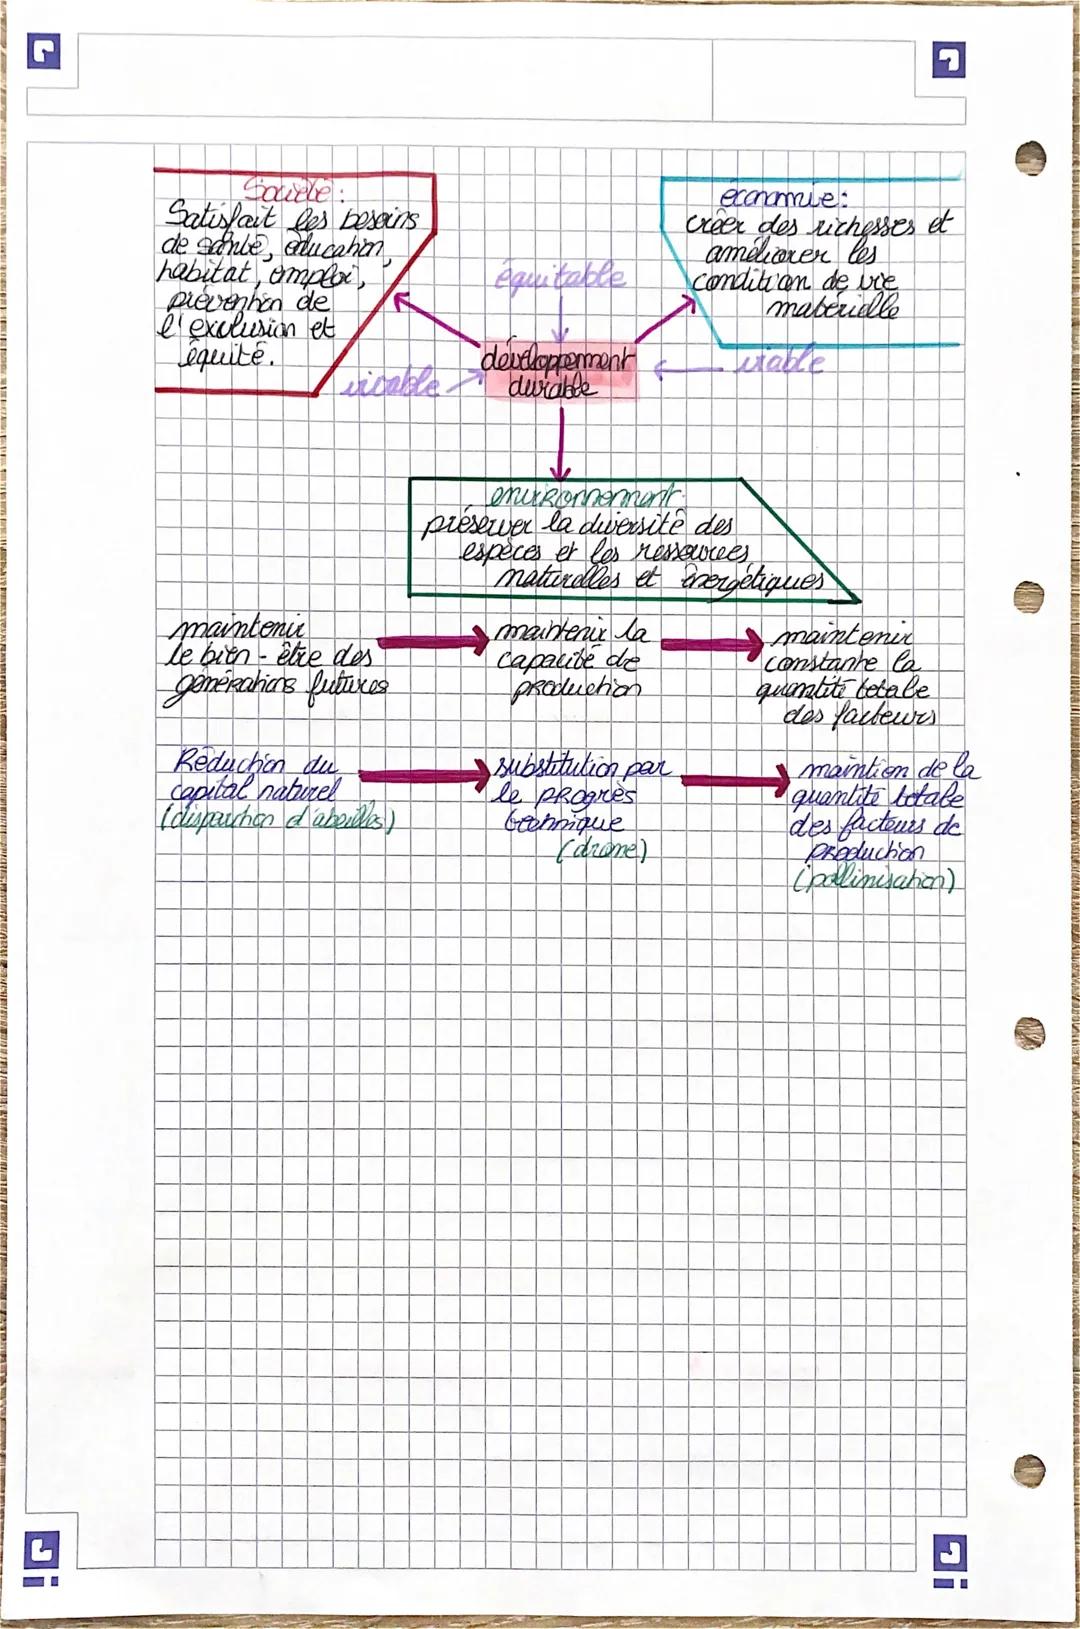 Société :
Satisfait les besoins
de santé, éducation,
habitat, emploi,
prévention de
l'exclusion et
équité.
économie:
créer des richesses et
améliorer les
condition de vie
matérielle
équitable
développement
durable
vivable
viable
environnement:
préserver la diversité des
espèces et les ressources
naturelles et énergétiques
maintenir
le bien-être des
générations futures
maintenir la
capacité de
production
maintenir
constante la
quantité totale
des facteurs
Réduction du
capital naturel
(disparition d'abeilles)
substitution par
le progrès
technique
(drone)
maintien de la
quantité totale
des facteurs de
production
(pollinisation)